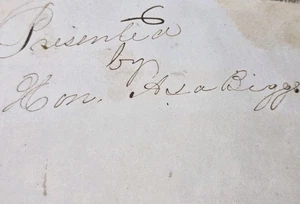 Presented
by
Hon. Asa Biggs